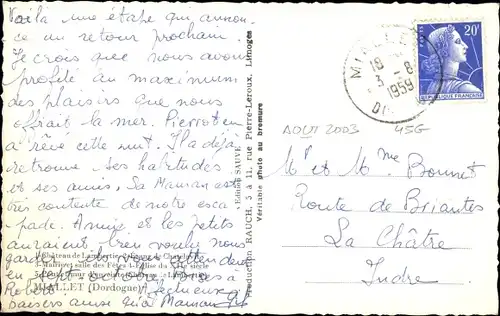 Voilà une étape qui annon-
ce un retour prochain.
Je crois que nous avons
profité au maximum
des plaisirs que nous
offrait la mer. Pierrot en
a rêvé cette nuit. Il a déjà
retrouvé ses habitudes
et ses amis. Sa Maman est
très contente de notre esca
pade. Annie et les petits
auraient bien voulu nous
garder
Rebero
baisers ainsi qu'à Maman
MIALLET (Dordogne)
Edition SAUVE
Production RAUCH, 5 à 11, rue Pierre-Leroux, Limoges
Véritable photo au bromure
20F
REPUBLIQUE FRANÇAISE
3 - 8
1959
AOUT 2003 45G
Mr et Mme Bonnet
Route de Briantes
La Châtre
Indre